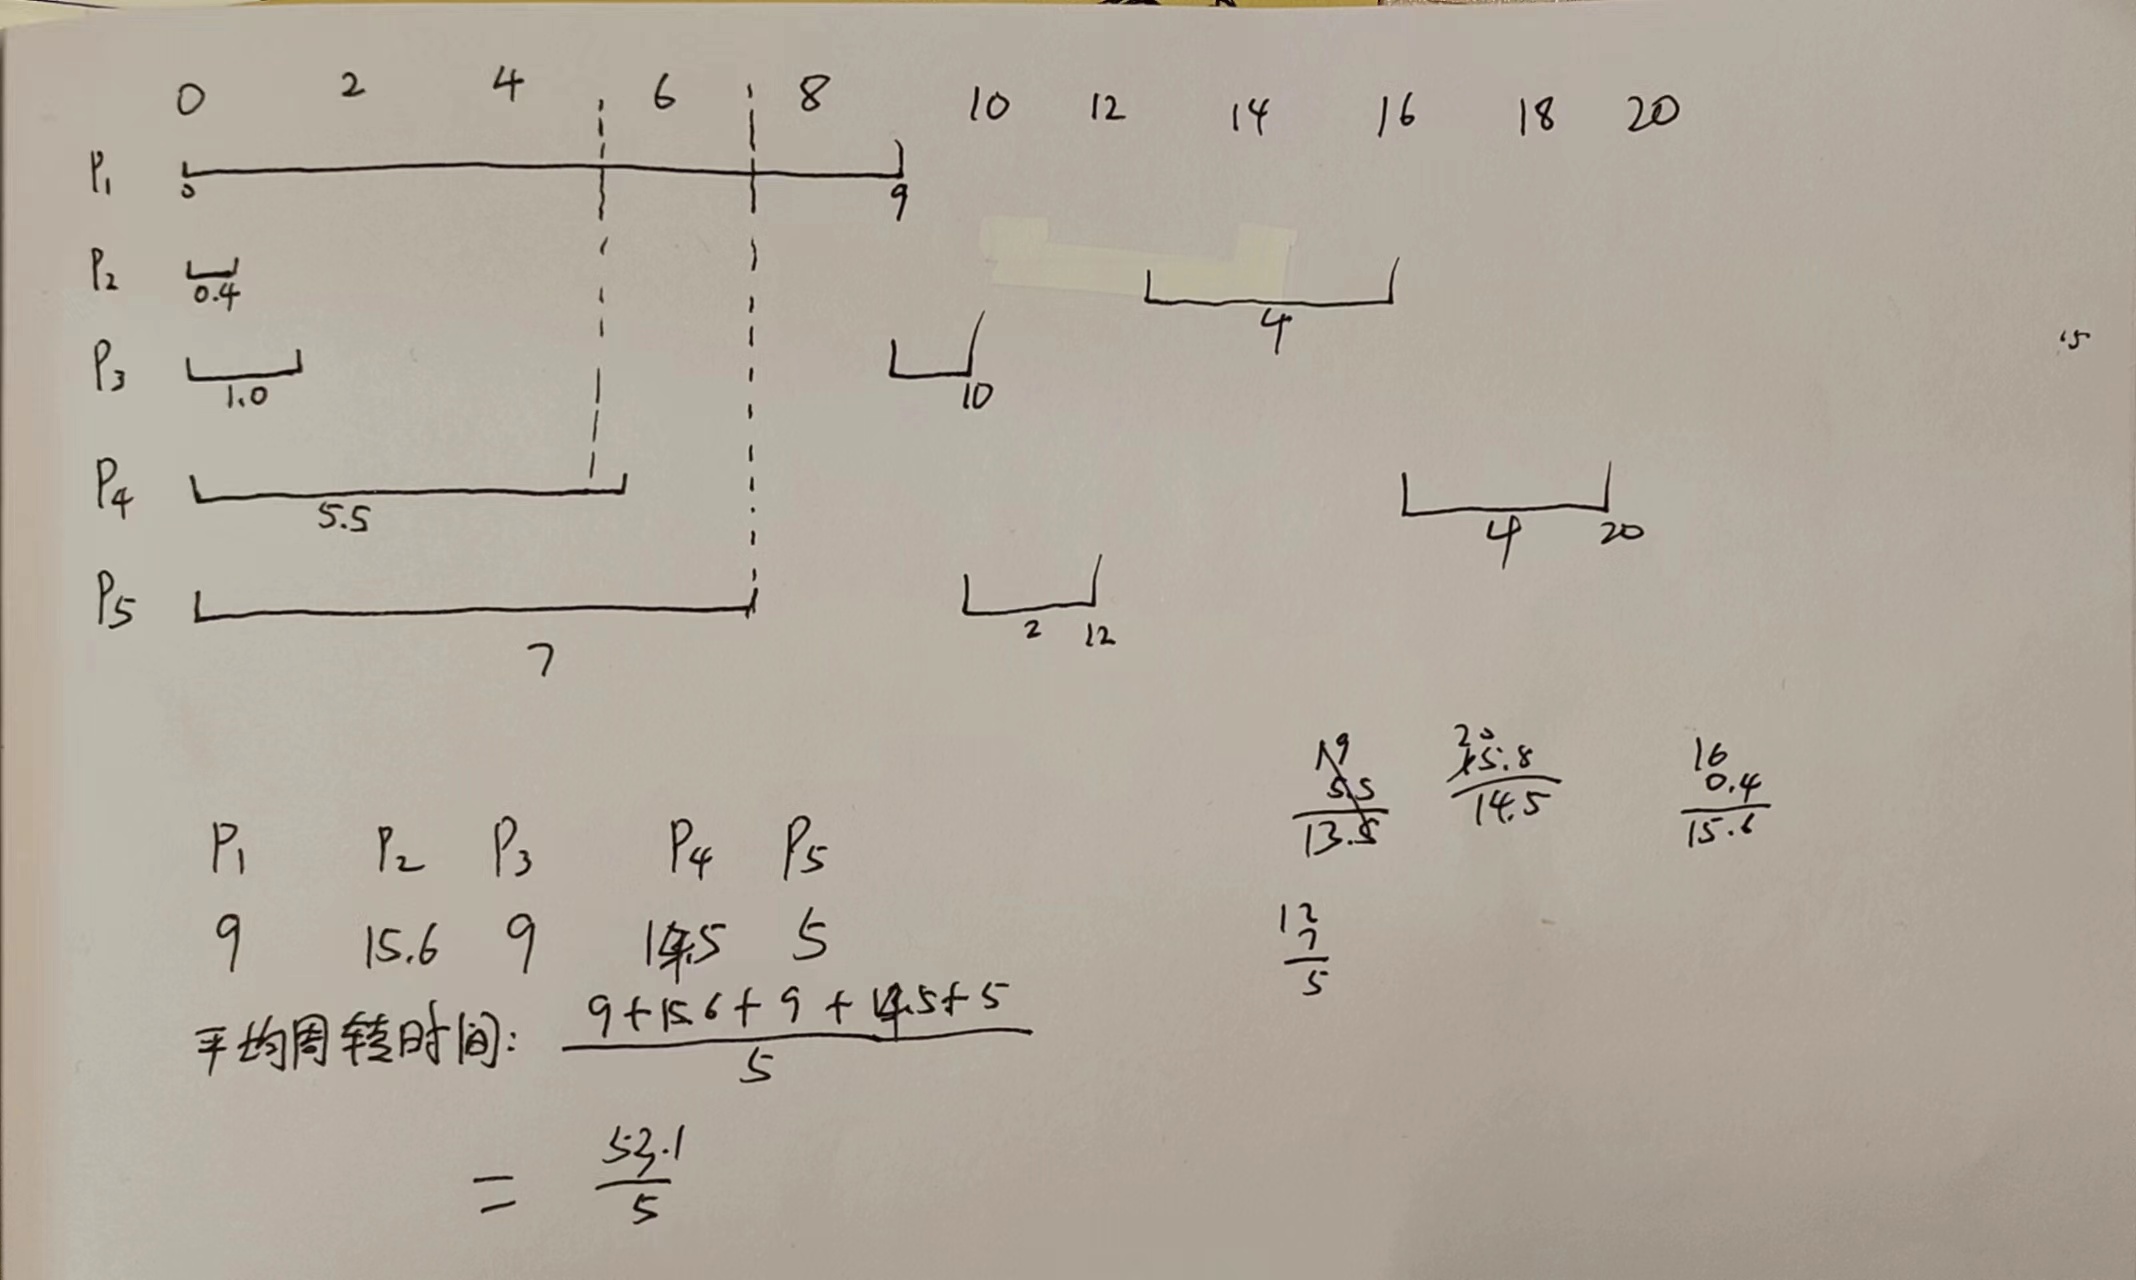 0 2 4 6 8 10 12 14 16 18 20
P1 0 9
P2 0.4 4
P3 1.0 10
P4 5.5 4 20
P5 7 2 12
P1 P2 P3 P4 P5
9 15.6 9 14.5 5
平均周转时间: 9+15.6+9+14.5+5
5
= 53.1
5
19
5.5
13.5
20
5.8
14.5
16
0.4
15.6
12
7
5